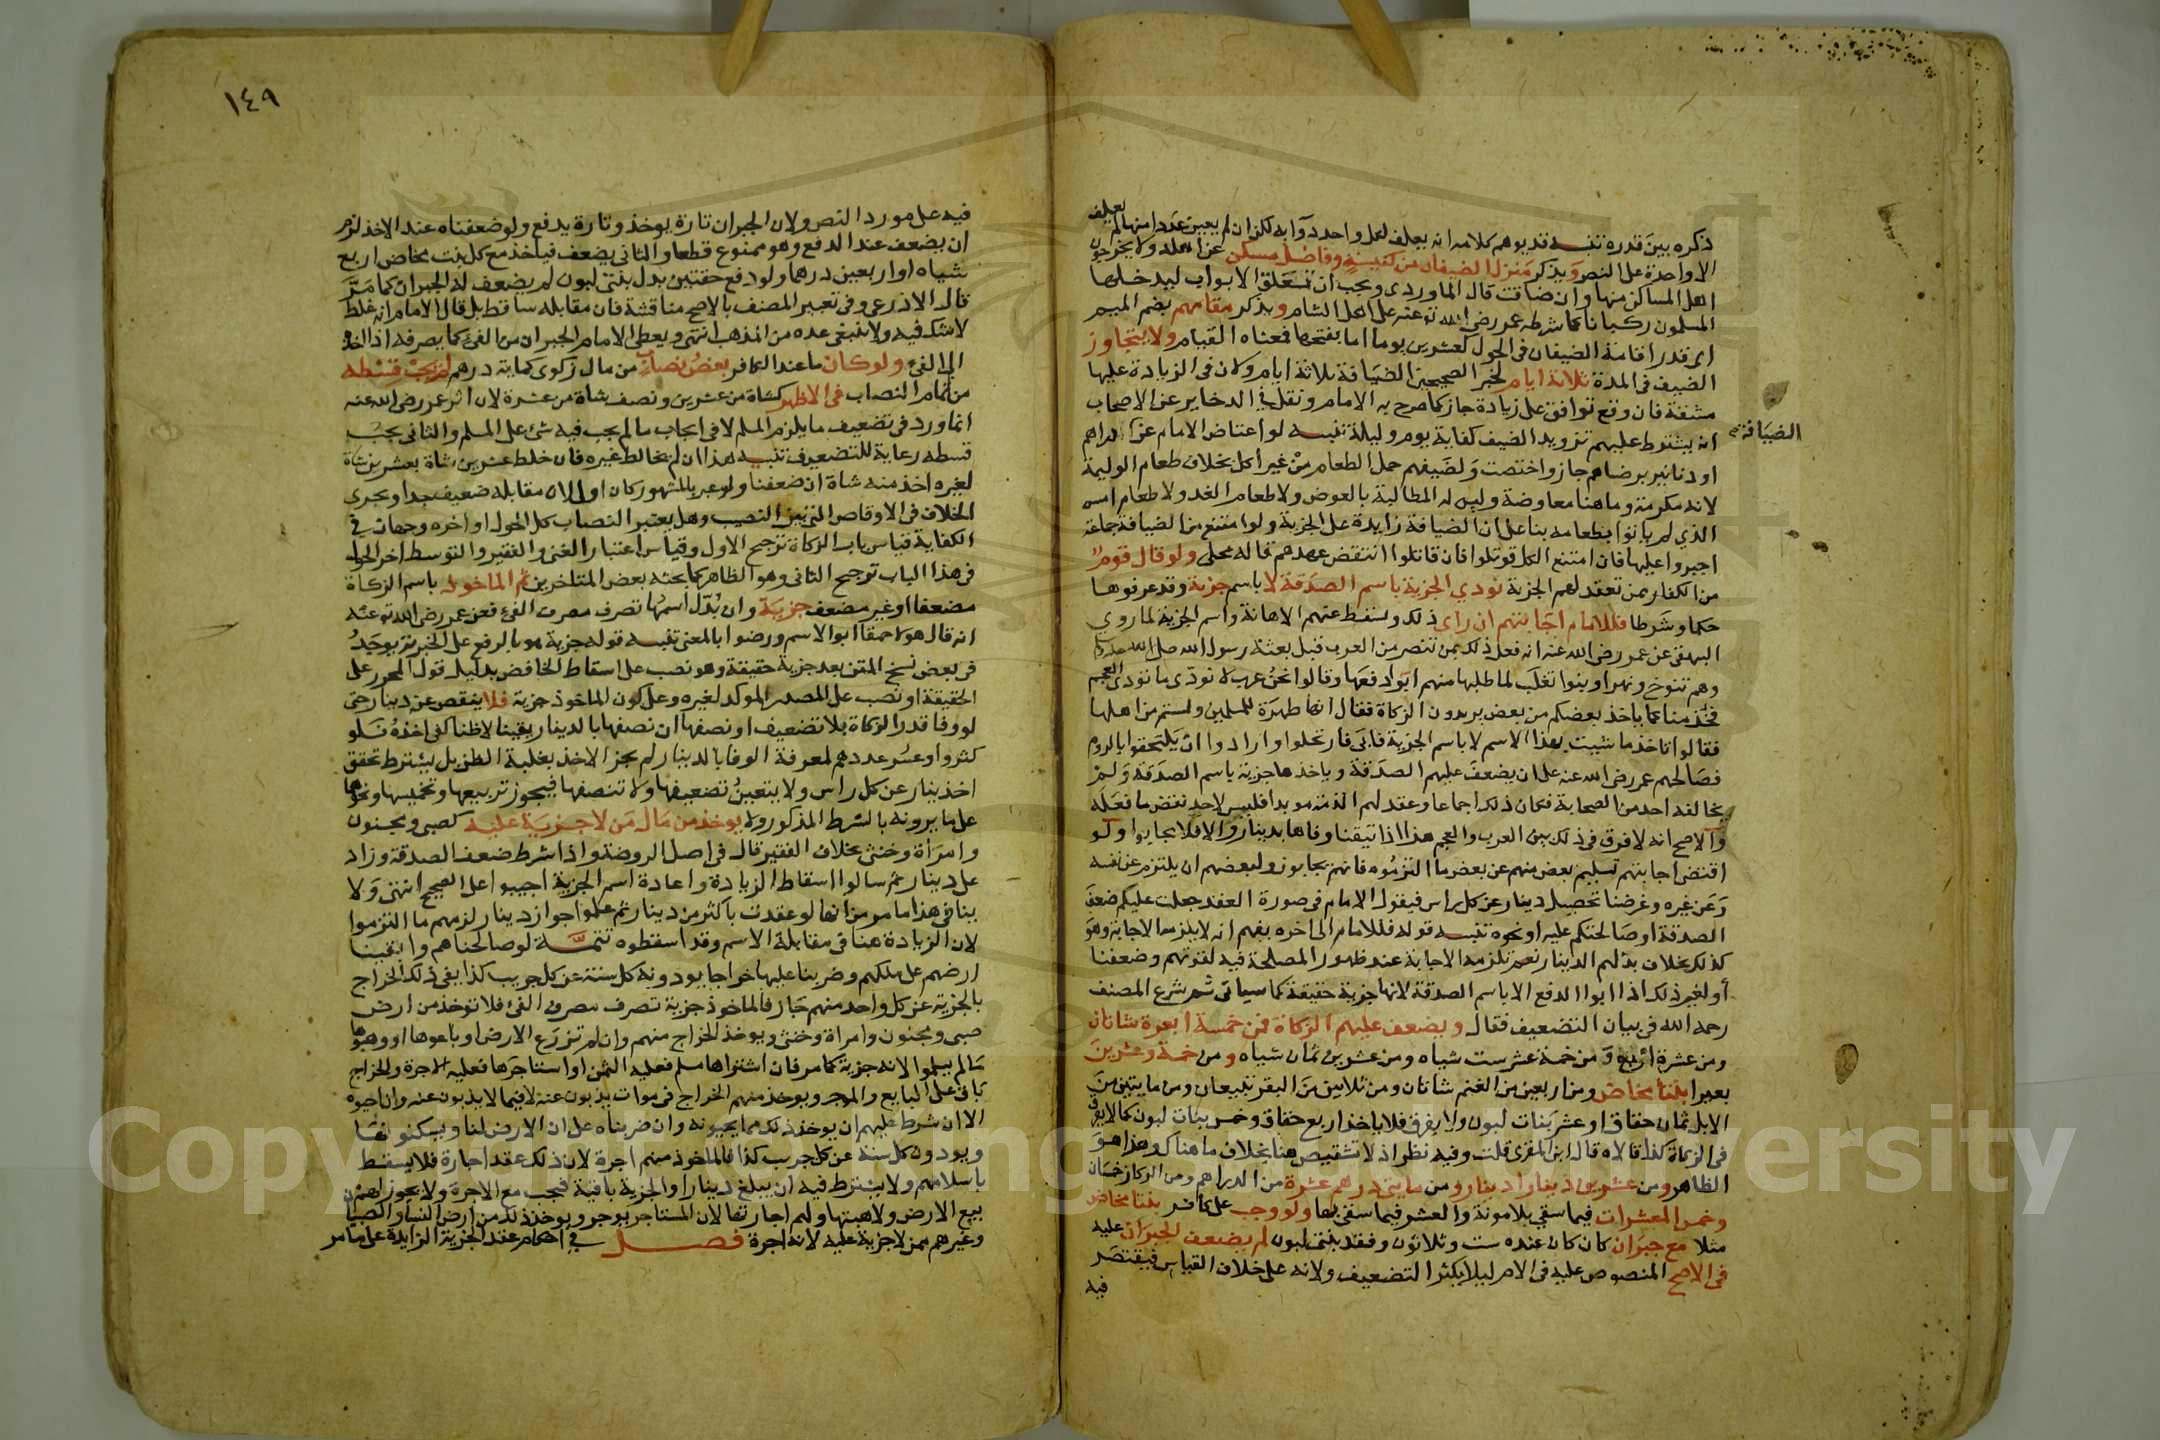 ذكره بين قدره تنبيه قد يوهم كلامه انه يعلف لكل واحد دوابه لكن ان لم يعين عددا منها لم يعلف
الا واحدة على النص ويذكر منزل الضيفان من كنيسة وفاضل مسكن عن اهله ولا يخرجون
اهل المساكن منها وان ضاقت قال الماوردي ويجب ان تعلق الابواب ليدخلها
المسلمون ركبانا كما شرطه عمر رضي الله تع عنه على اهل الشام ويذكر مقامهم بضم الميم
اى قدر اقامة الضيفان فى الحول كعشرين يوما اما بفتحها فمعناه القيام ولا يتجاوز
الضيف فى المدة ثلاثة ايام لخبر الصحيحين الضيافة ثلاثة ايام ولان فى الزيادة عليها
مشقة فان وقع توافق على زيادة جاز كما صرح به الامام ونقل في الذخاير عن الاصحاب
انه يشترط عليهم تزويد الضيف كفاية يوم وليلة تنبيه لو اعتاض الامام عن الدراهم
الضيافة
او دنانير برضاهم جاز واختصت ولضيفهم حمل الطعام من غير اكل بخلاف طعام الوليمة
لانه مكرمة وما هنا معاوضة وليس له المطالبة بالعوض ولا طعام الغد ولا طعام امس
الذي لم ياتوا بطعامه بنا على ان الضيافة زايدة على الجزية ولو امتنع من الضيافة جماعة
اجبروا عليها فان امتنع الكل قوتلوا فان قاتلوا انتقض عهدهم قاله محلى ولو قال قوم
من الكفار ممن تعقد لهم الجزية نودي الجزية باسم الصدقة لا باسم جزية وقد عرفوها
حكما وشرطا فللامام اجابتهم ان راى ذلك وسقط عنهم الاهانة واسم الجزية لما روي
البيهقى عن عمر رضى الله عنه انه فعل ذلك بمن تنصر من العرب قبل بعثة رسول الله صلى الله عليه وسلم
وهم تنوخ وبهرا وبنوا تغلب لما طلبها منهم ابوا دفعها وقالوا نحن عرب لا نودى ما تودى العجم
فخذ منا كما ياخذ بعضكم من بعض يريدون الزكاة فقال انها طهرة للمسلمين ولستم من اهلها
فقالوا تاخذ ما شيت بهذا الاسم لا باسم الجزية فابى فارتحلوا وارادوا ان يلتحقوا بالروم
فصالحهم عمر رضى الله عنه على ان يضعف عليهم الصدقة وياخذها جزية باسم الصدقة ولم
يخالفه احد من الصحابة فكان ذلك اجماعا وعقد لهم الذمة موبدا فليس لاحد نقض ما فعله
والاصح انه لا فرق فى ذلك بين العرب والعجم هذا اذا تيقنا وفاها بدينار والا فلا يجابوا ولو
اقتضى اجابتهم تسليم بعض منهم عن بعض ما التزموه فانهم يجابون ولبعضهم ان يلتزم عن نفسه
وعن غيره وغرضنا تحصيل دينار عن كل راس فيقول الامام فى صورة العقد جعلت عليكم ضعف
الصدقة او صالحتكم عليه او نحوه تنبيه قوله فللامام الى اخره يفهم انه لا يلزمه الاجابة وهو
كذلك بخلاف بذلهم الدينار نعم تلزمه الاجابة عند ظهور المصلحة فيه لقوتهم وضعفنا
أو لغير ذلك اذا ابوا الدفع الا باسم الصدقة لانها جزية حقيقة كما سياتى ثم شرع المصنف
رحمه الله فى بيان التضعيف فقال ويضعف عليهم الزكاة فمن خمسة ابعرة شاتان
ومن عشرة اربع ومن خمسة عشر ست شياه ومن عشرين ثمان شياه ومن خمسة وعشرين
بعيرا بنتا مخاض ومن اربعين من الغنم شاتان ومن ثلاثين من البقر تبيعان ومن مايتين من
الابل ثمان حقاق او عشر بنات لبون ولا يفرق فلا ياخذ اربع حقاق وخمس بنات لبون كما لا يفرق
فى الزكاة كذا قالاه قال ابن المقرى قلت وفيه نظر اذ لا تشقيص هنا بخلاف ما هناك وهذا هو
الظاهر ومن عشرين دينارا دينار ومن مايتى درهم عشرة من الدراهم ومن الركاز خمسان
وخمس المعشرات فيما سقي بلا مونة والعشر فيما سقى بها ولو وجب على كافر بنتا مخاض
مثلا مع جبران كان كان عنده ست وثلاثون وفقد بنتى لبون لم يضعف الجبران عليه
فى الاصح المنصوص عليه فى الام ليلا يكثر التضعيف ولانه على خلاف القياس فيقتصر
فيه
١٤٩
فيه على مورد النص ولان الجبران تارة يوخذ وتارة يدفع ولو ضعفناه عند الاخذ لزم
ان يضعف عند الدفع وهو ممنوع قطعا والثانى يضعف فياخذ مع كل بنت مخاض اربع
شياه او اربعين درهما ولو دفع حقتين بدل بنتى لبون لم يضعف له الجبران كما مر
قال الاذرعى وفى تعبير المصنف بالاصح مناقشة فان مقابله ساقط بل قال الامام انه غلط
لا شك فيه ولا ينبغى عده من المذهب انتهى ويعطى الامام الجبران من الفئ كما يصرفه اذا اخذه
الى الفئ ولو كان ما عند الكافر بعض نصاب من مال زكوى كماية درهم لم يجب قسطه
من تمام النصاب فى الاظهر كشاة من عشرين ونصف شاة من عشرة لان اثر عمر رضى الله عنه
انما ورد فى تضعيف ما يلزم المسلم لا فى ايجاب ما لم يجب فيه شئ على المسلم والثانى يجب
قسطه رعاية للتضعيف تنبيه هذا ان لم يخالط غيره فان خلط عشرين شاة بعشرين شاة
لغيره اخذ منه شاة ان ضعفنا ولو عبر بالمشهور كان اولى لان مقابله ضعيف جدا ويجرى
الخلاف فى الاوقاص التى بين النصيب وهل يعتبر النصاب كل الحول او اخره وجهان في
الكفاية قياس باب الزكاة ترجيح الاول وقياس اعتبار الغنى والفقير والتوسط اخر الحول
فى هذا الباب ترجيح الثانى وهو الظاهر كما بحثه بعض المتاخرين ثم الماخوذ باسم الزكاة
مضعفا او غير مضعف جزية وان بدل اسمها تصرف مصرف الفئ فعن عمر رضى الله تع عنه
انه قال هولا حمقا ابوا الاسم ورضوا بالمعنى تنبيه قوله جزية هو بالرفع على الخبر ثم يوجد
فى بعض نسخ المتن بعد جزية حقيقة وهو نصب على اسقاط الخافض بدليل قول المحرر على
الحقيقة او نصب على المصدر الموكد لغيره وعلى كون الماخوذ جزية فلا ينقص عن دينار حتى
لو وفا قدر الزكاة بلا تضعيف او نصفها ان نصفها بالدينار يقينا لا ظنا كفى اخذه فلو
كثروا وعسر عددهم لمعرفة الوفا بالدينار لم يجز الاخذ بغلبة الظن بل يشترط تحقق
اخذ دينار عن كل راس ولا يتعين تضعيفها ولا تنصفها فيجوز تربيعها وتخميسها ونحوها
على ما يرونه بالشرط المذكور ولا يوخذ من مال من لا جزية عليه كصبى ومجنون
وامراة وخنثى بخلاف الفقير قال فى اصل الروضة واذا شرط ضعف الصدقة وزاد
على دينار ثم سالوا اسقاط الزيادة واعادة اسم الجزية اجيبوا على الصحيح انتهى ولا
ينافى هذا ما مر من انها لو عقدت باكثر من دينار ثم علموا جواز دينار لزمهم ما التزموا
لان الزيادة هنا فى مقابلة الاسم وقد اسقطوه تتمة لو صالحناهم وابقينا
ارضهم على ملكهم وضربنا عليها خراجا يودونه كل سنة عن كل جريب كذا يفى ذلك الخراج
بالجزية عن كل واحد منهم جاز فالماخوذ جزية تصرف مصرف الفئ فلا توخذ من ارض
صبى ومجنون وامراة وخنثى ويوخذ الخراج منهم وان لم تزرع الارض او باعوها او وهبوها
ما لم يسلموا لانه جزية كما مر فان اشتراها مسلم فعليه الثمن او استاجرها فعليه الاجرة والخراج
باق على البايع والموجر ويوخذ منهم الخراج فى موات يذبون عنه لا فيما لا يذبون عنه وان احيوه
الا ان شرط عليهم ان يوخذ ذلك مما يحيونه وان ضربناه على ان الارض لنا ويسكنونها
ويودون كل سنة عن كل جريب كذا فالماخوذ منهم اجرة لان ذلك عقد اجارة فلا يسقط
باسلامهم ولا يشترط فيه ان يبلغ دينارا والجزية باقية فتجب مع الاجرة ولا يجوز لهم
بيع الارض ولا هبتها ولهم اجارتها لان المستاجر يوجر ويوخذ ذلك من ارض النسا والصبيان
وغيرهم ممن لا جزية عليه لانه اجرة فصل في احكام عقد الجزية الزايدة على ما مر
Copy
ng
versity